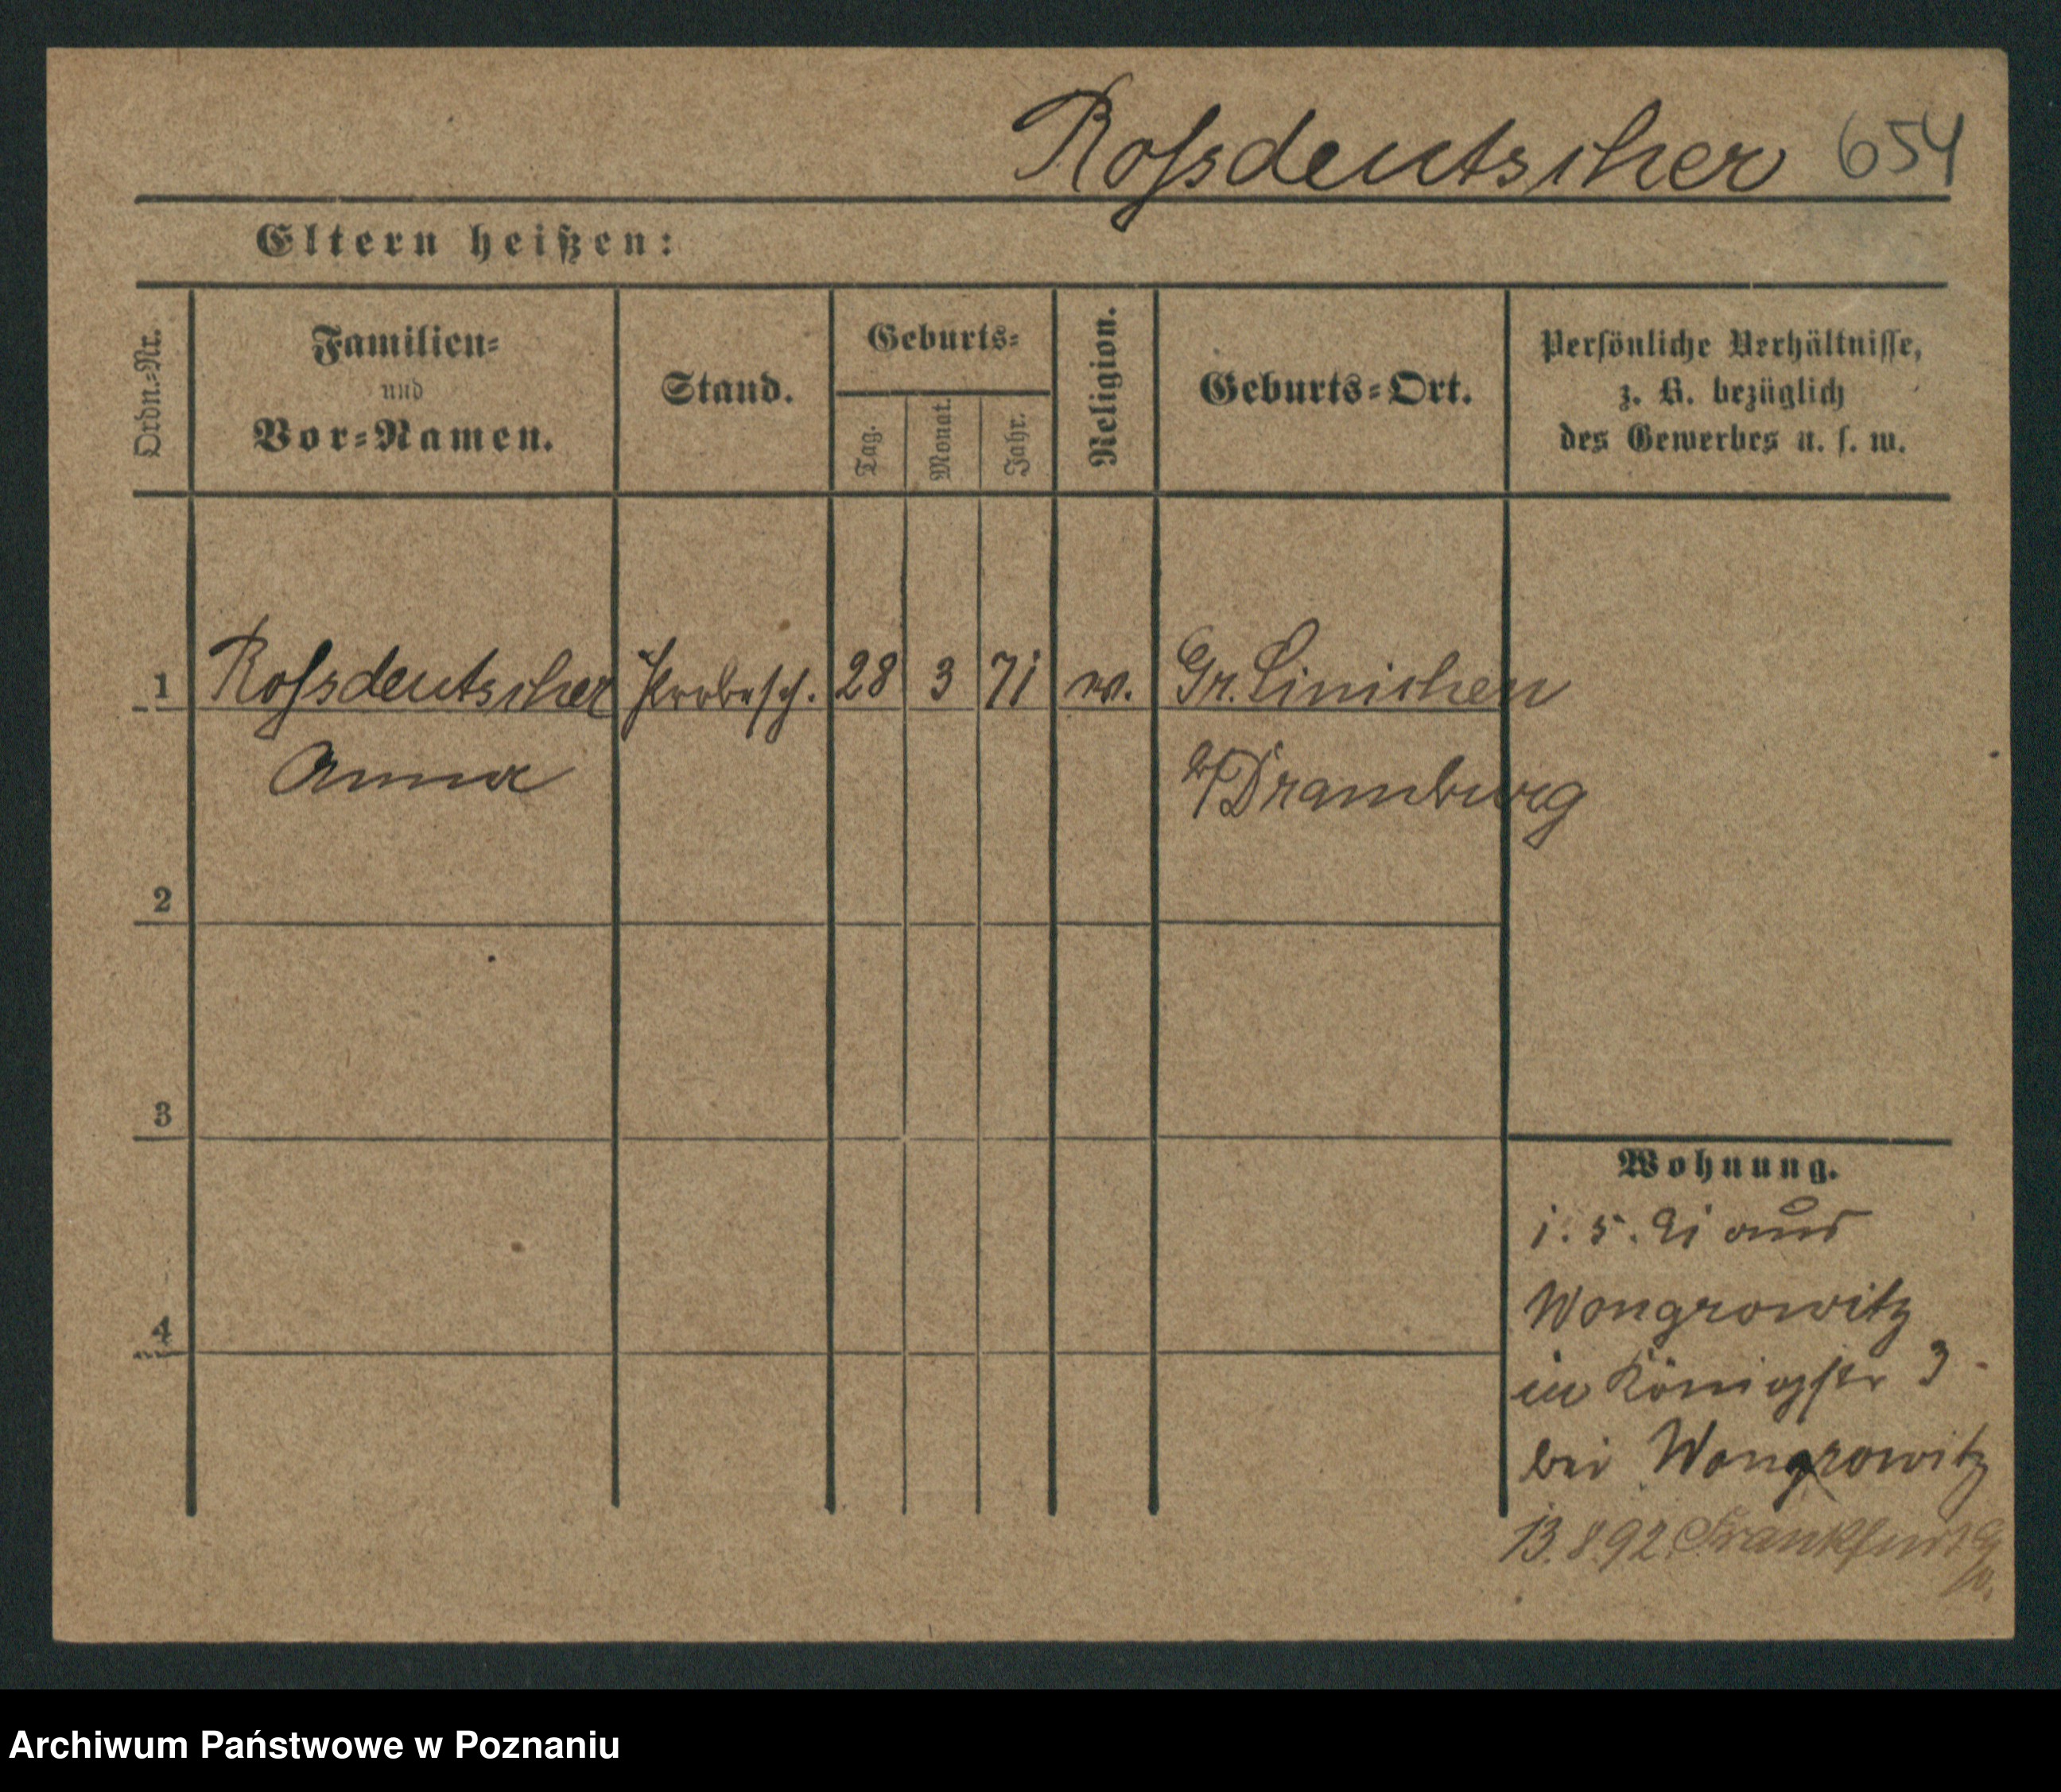 Roſsdeutscher 654
Eltern heißen:
Ordn.-Nr.
Familien-
und
Vor-Namen.
Stand.
Geburts-
Tag.
Monat.
Jahr.
Religion.
Geburts-Ort.
Persönliche Verhältnisse,
z. B. bezüglich
des Gewerbes u. s. w.
1 Roſsdeutscher 28 3 71 Gr. Linichen
Anna Dramburg
2
3
4
Wohnung.
1. 5. 91 aus
Wongrowitz
in Königstr 3
bei Wongrowitz
13.8.92. Frankfurt
Archiwum Państwowe w Poznaniu